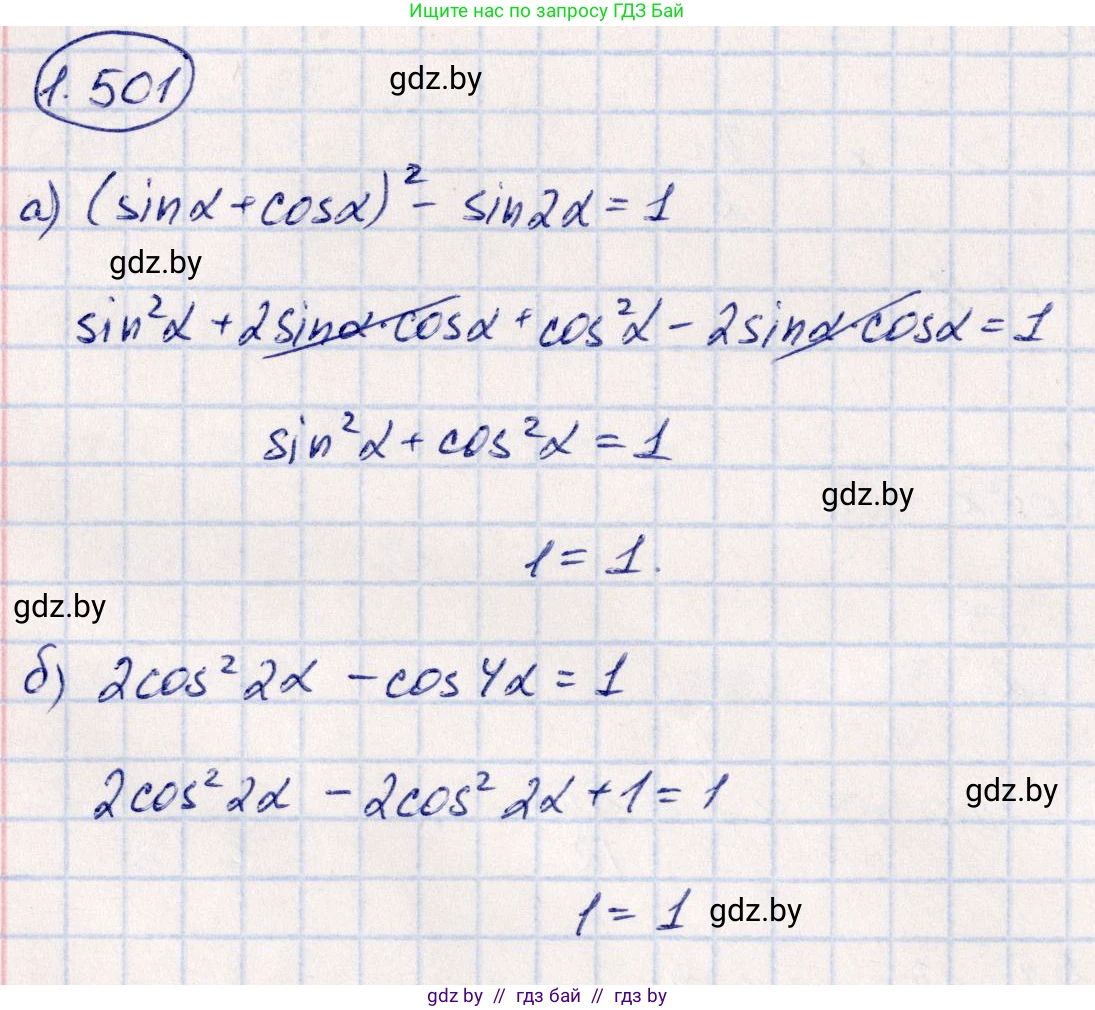 Ищите нас по запросу ГДЗ Бай
1.501
gdz.by
а) (sinα + cosα)² - sin2α = 1
gdz.by
sin²α + 2sinα·cosα + cos²α - 2sinα·cosα = 1
sin²α + cos²α = 1
gdz.by
1 = 1.
gdz.by
б) 2cos²2α - cos4α = 1
2cos²2α - 2cos²2α + 1 = 1
gdz.by
1 = 1
gdz.by
gdz.by // гдз бай // гдз by